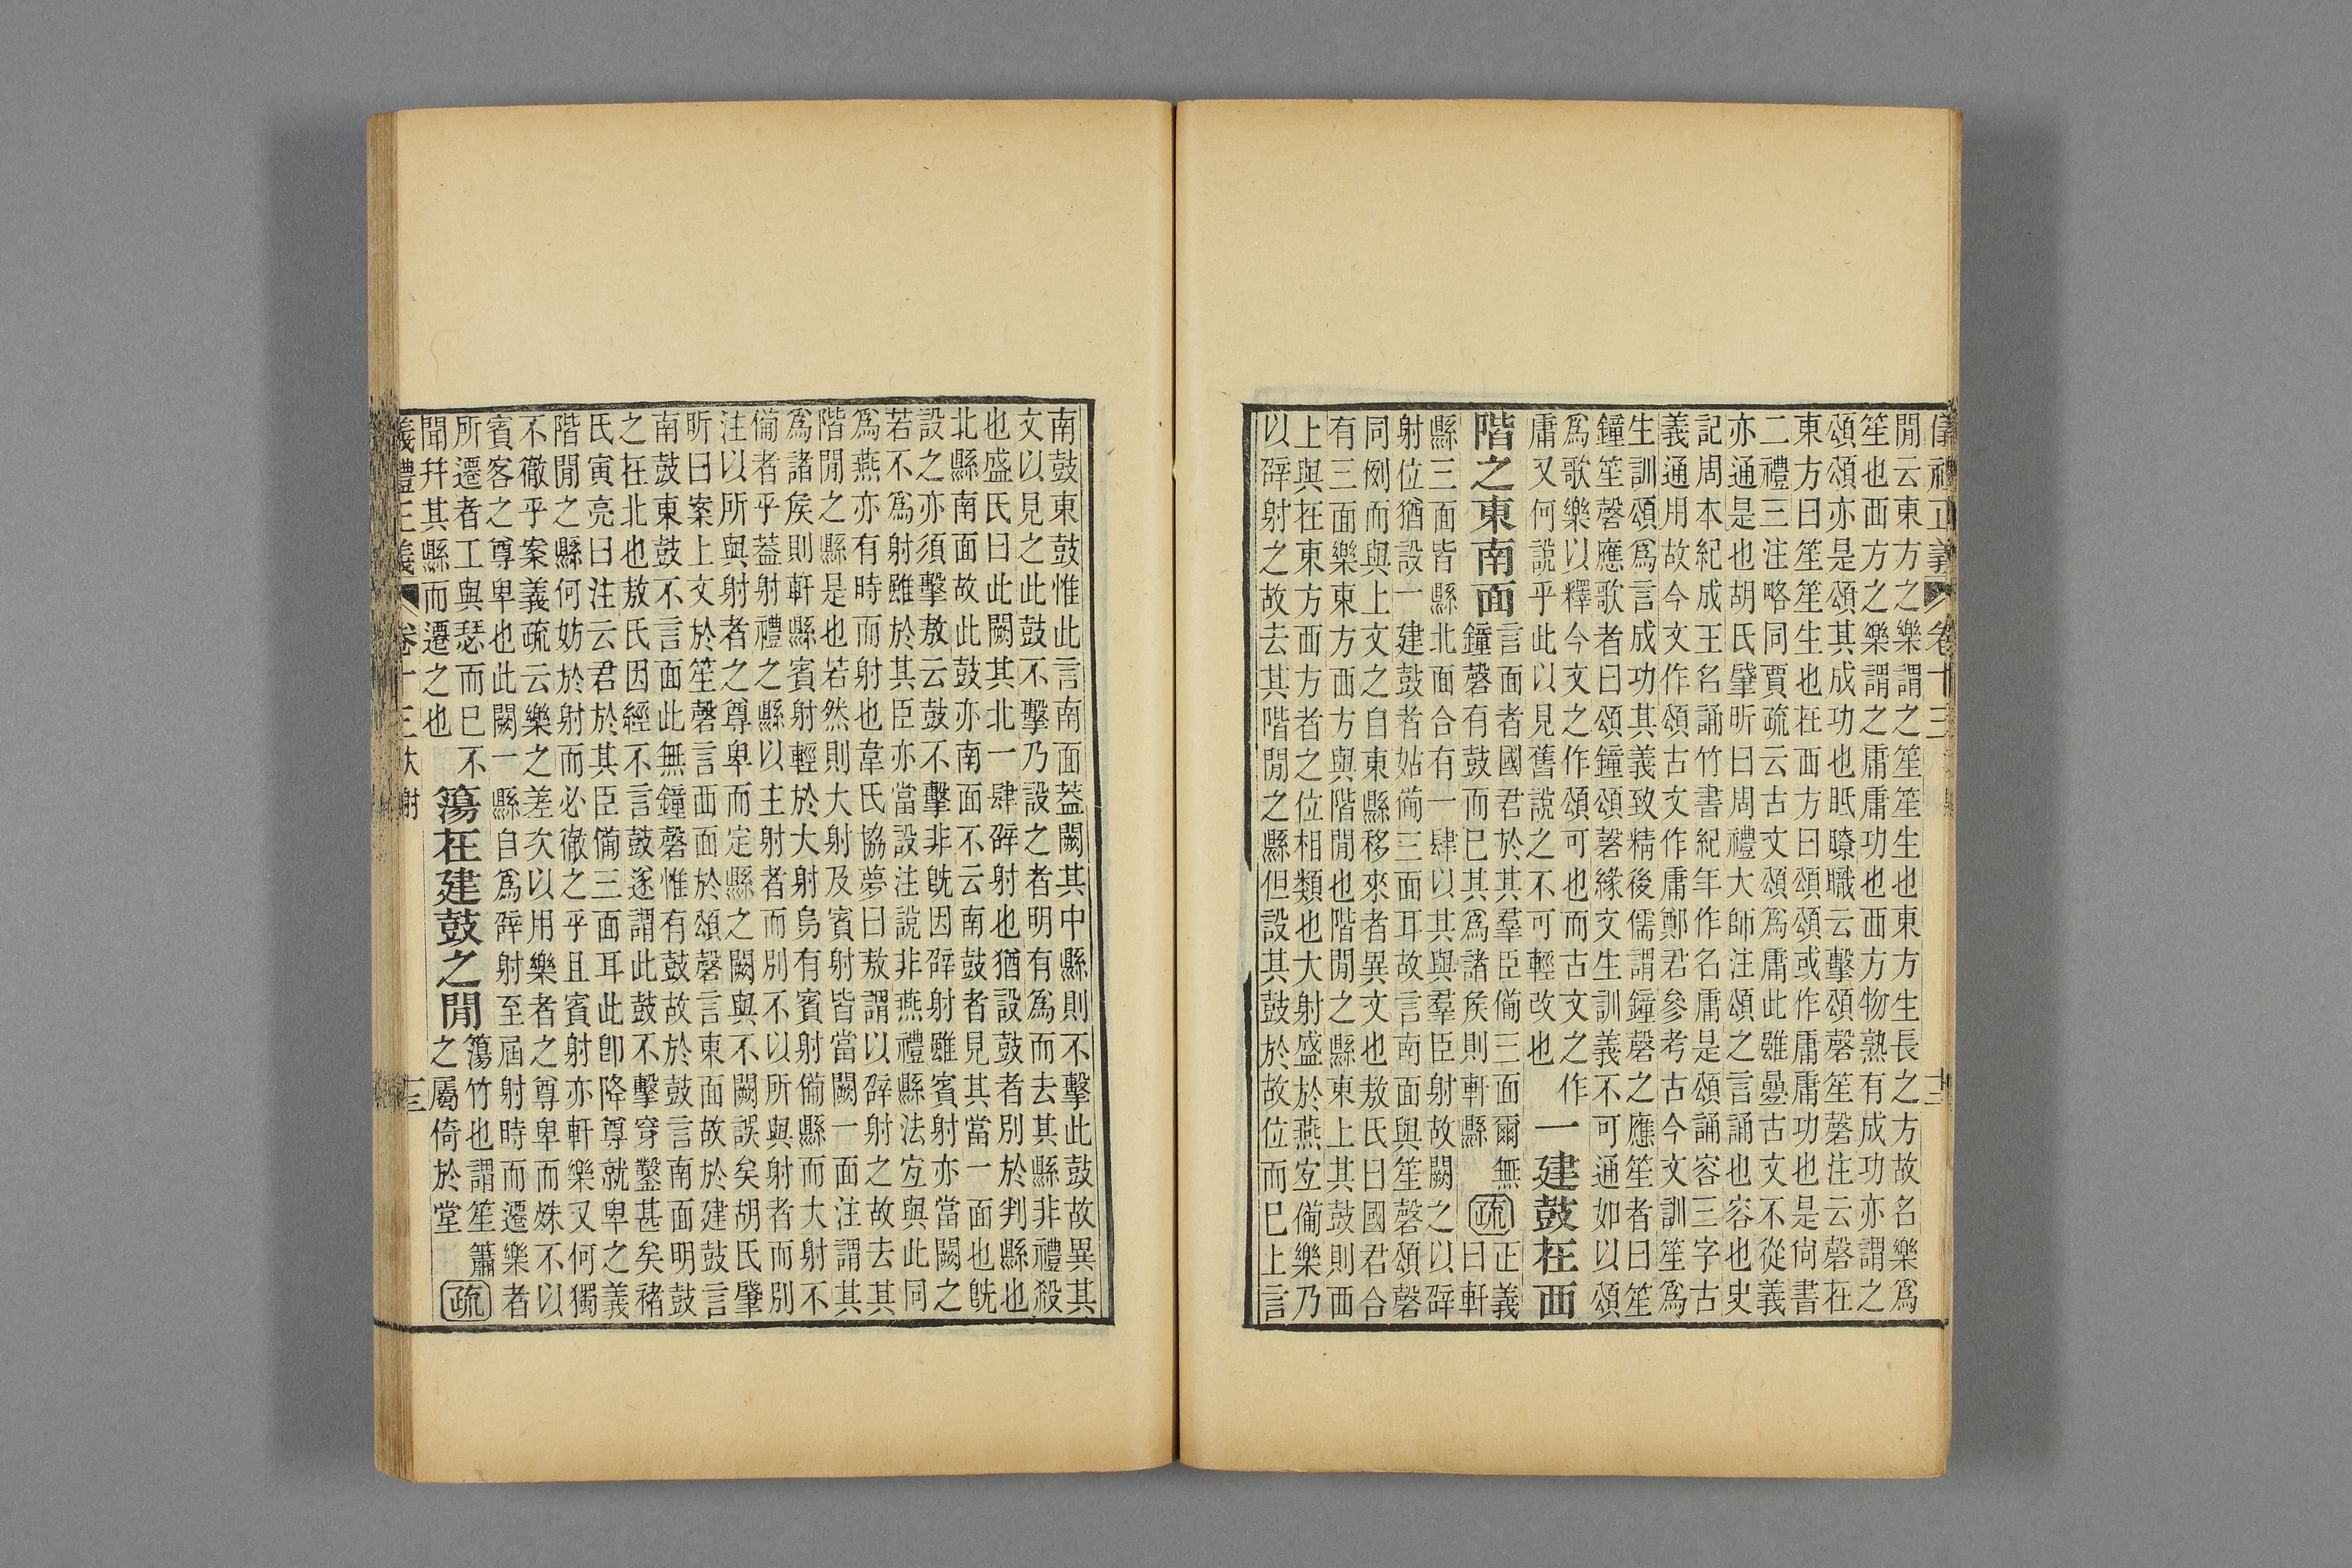 儀禮正義 卷十三
閒云東方之樂謂之笙笙生也東方生長之方故名樂爲
笙也西方之樂謂之庸庸功也西方物熟有成功亦謂之
頌頌亦是頌其成功也眂瞭職云擊頌磬笙磬注云磬在
東方曰笙笙生也在西方曰頌頌或作庸庸功也是尙書
二禮三注略同賈疏云古文頌爲庸此雖曡古文不從義
亦通是也胡氏肇昕曰周禮大師注頌之言誦也容也史
記周本紀成王名誦竹書紀年作名庸是頌誦容三字古
義通用故今文作頌古文作庸鄭君參考古今文訓笙爲
生訓頌爲言成功其義致精後儒謂鐘磬之應笙者曰笙
鐘笙磬應歌者曰頌鐘頌磬緣文生訓義不可通如以頌
爲歌樂以釋今文之作頌可也而古文之作
庸又何說乎此以見舊說之不可輕改也
一建鼓在西
階之東南面
言面者國君於其羣臣備三面爾無
鐘磬有鼓而已其爲諸矦則軒縣
疏
正義
曰軒
縣三面皆縣北面合有一肆以其與羣臣射故闕之以辟
射位猶設一建鼓者姑備三面耳故言南面與笙磬頌磬
同例而與上文之自東縣移來者異文也敖氏曰國君合
有三面樂東方西方與階閒也階閒之縣東上其鼓則西
上與在東方西方者之位相類也大射盛於燕宐備樂乃
以辟射之故去其階閒之縣但設其鼓於故位而已上言
南鼓東鼓惟此言南面葢闕其中縣則不擊此鼓故異其
文以見之此鼓不擊乃設之者明有爲而去其縣非禮殺
也盛氏曰此闕其北一肆辟射也猶設鼓者別於判縣也
北縣南面故此鼓亦南面不云南鼓者見其當一面也旣
設之亦須擊敖云鼓不擊非旣因辟射雖賓射亦當闕之
若不爲射雖於其臣亦當設注說非燕禮縣法宐與此同
爲燕亦有時而射也韋氏協夢曰敖謂以辟射之故去其
階閒之縣是也若然則大射及賓射皆當闕一面注謂其
爲諸矦則軒縣賓射輕於大射舄有賓射備縣而大射不
備者乎葢射禮之縣以主射者而別不以所與射者而別
注以所與射者之尊卑而定縣之闕與不闕誤矣胡氏肇
昕曰案上文於笙磬言西面於頌磬言東面故於建鼓言
南鼓東鼓不言面此無鐘磬惟有鼓故於鼓言南面明鼓
之在北也敖氏因經不言鼓遂謂此鼓不擊穿鑿甚矣褚
氏寅亮曰注云君於其臣備三面耳此卽降尊就卑之義
階閒之縣何妨於射而必徹之乎且賓射亦軒樂又何獨
不徹乎案義疏云樂之差次以用樂者之尊卑而姝不以
賓客之尊卑也此闕一縣自爲辟射至屆射時而遷樂者
所遷者工與瑟而已不
聞幷其縣而遷之也
簜在建鼓之閒
簜竹也謂笙簫
之屬倚於堂
疏
義禮正義 卷十三 大射 十三